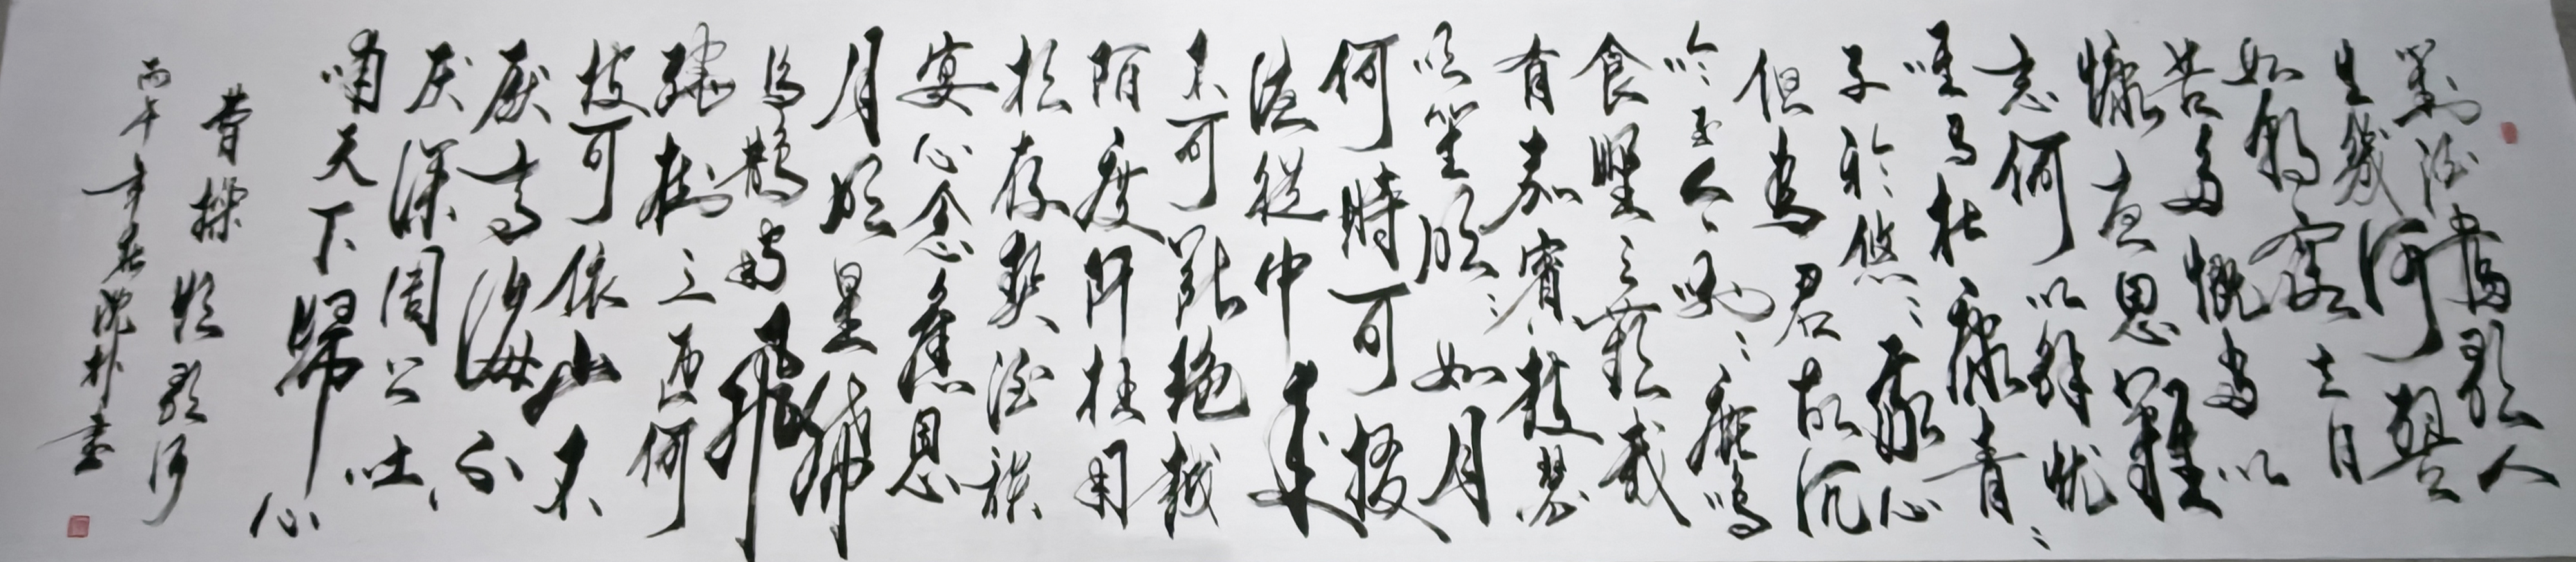 對酒當歌人
生幾何譬
如朝露去日
苦多慨當以
慷憂思難
忘何以解憂
唯有杜康青々
子衿悠々我心
但爲君故沉
吟至今呦々鹿鳴
食野之苹我
有嘉賓鼓瑟
吹笙明々如月
何時可掇
憂從中來
不可斷絕越
陌度阡枉用
相存契闊談
宴心念舊恩
月明星稀
烏鵲南飛
繞樹三匝何
枝可依山不
厭高海不
厭深周公吐
哺天下歸心
曹操短歌行
丙午年春沈書